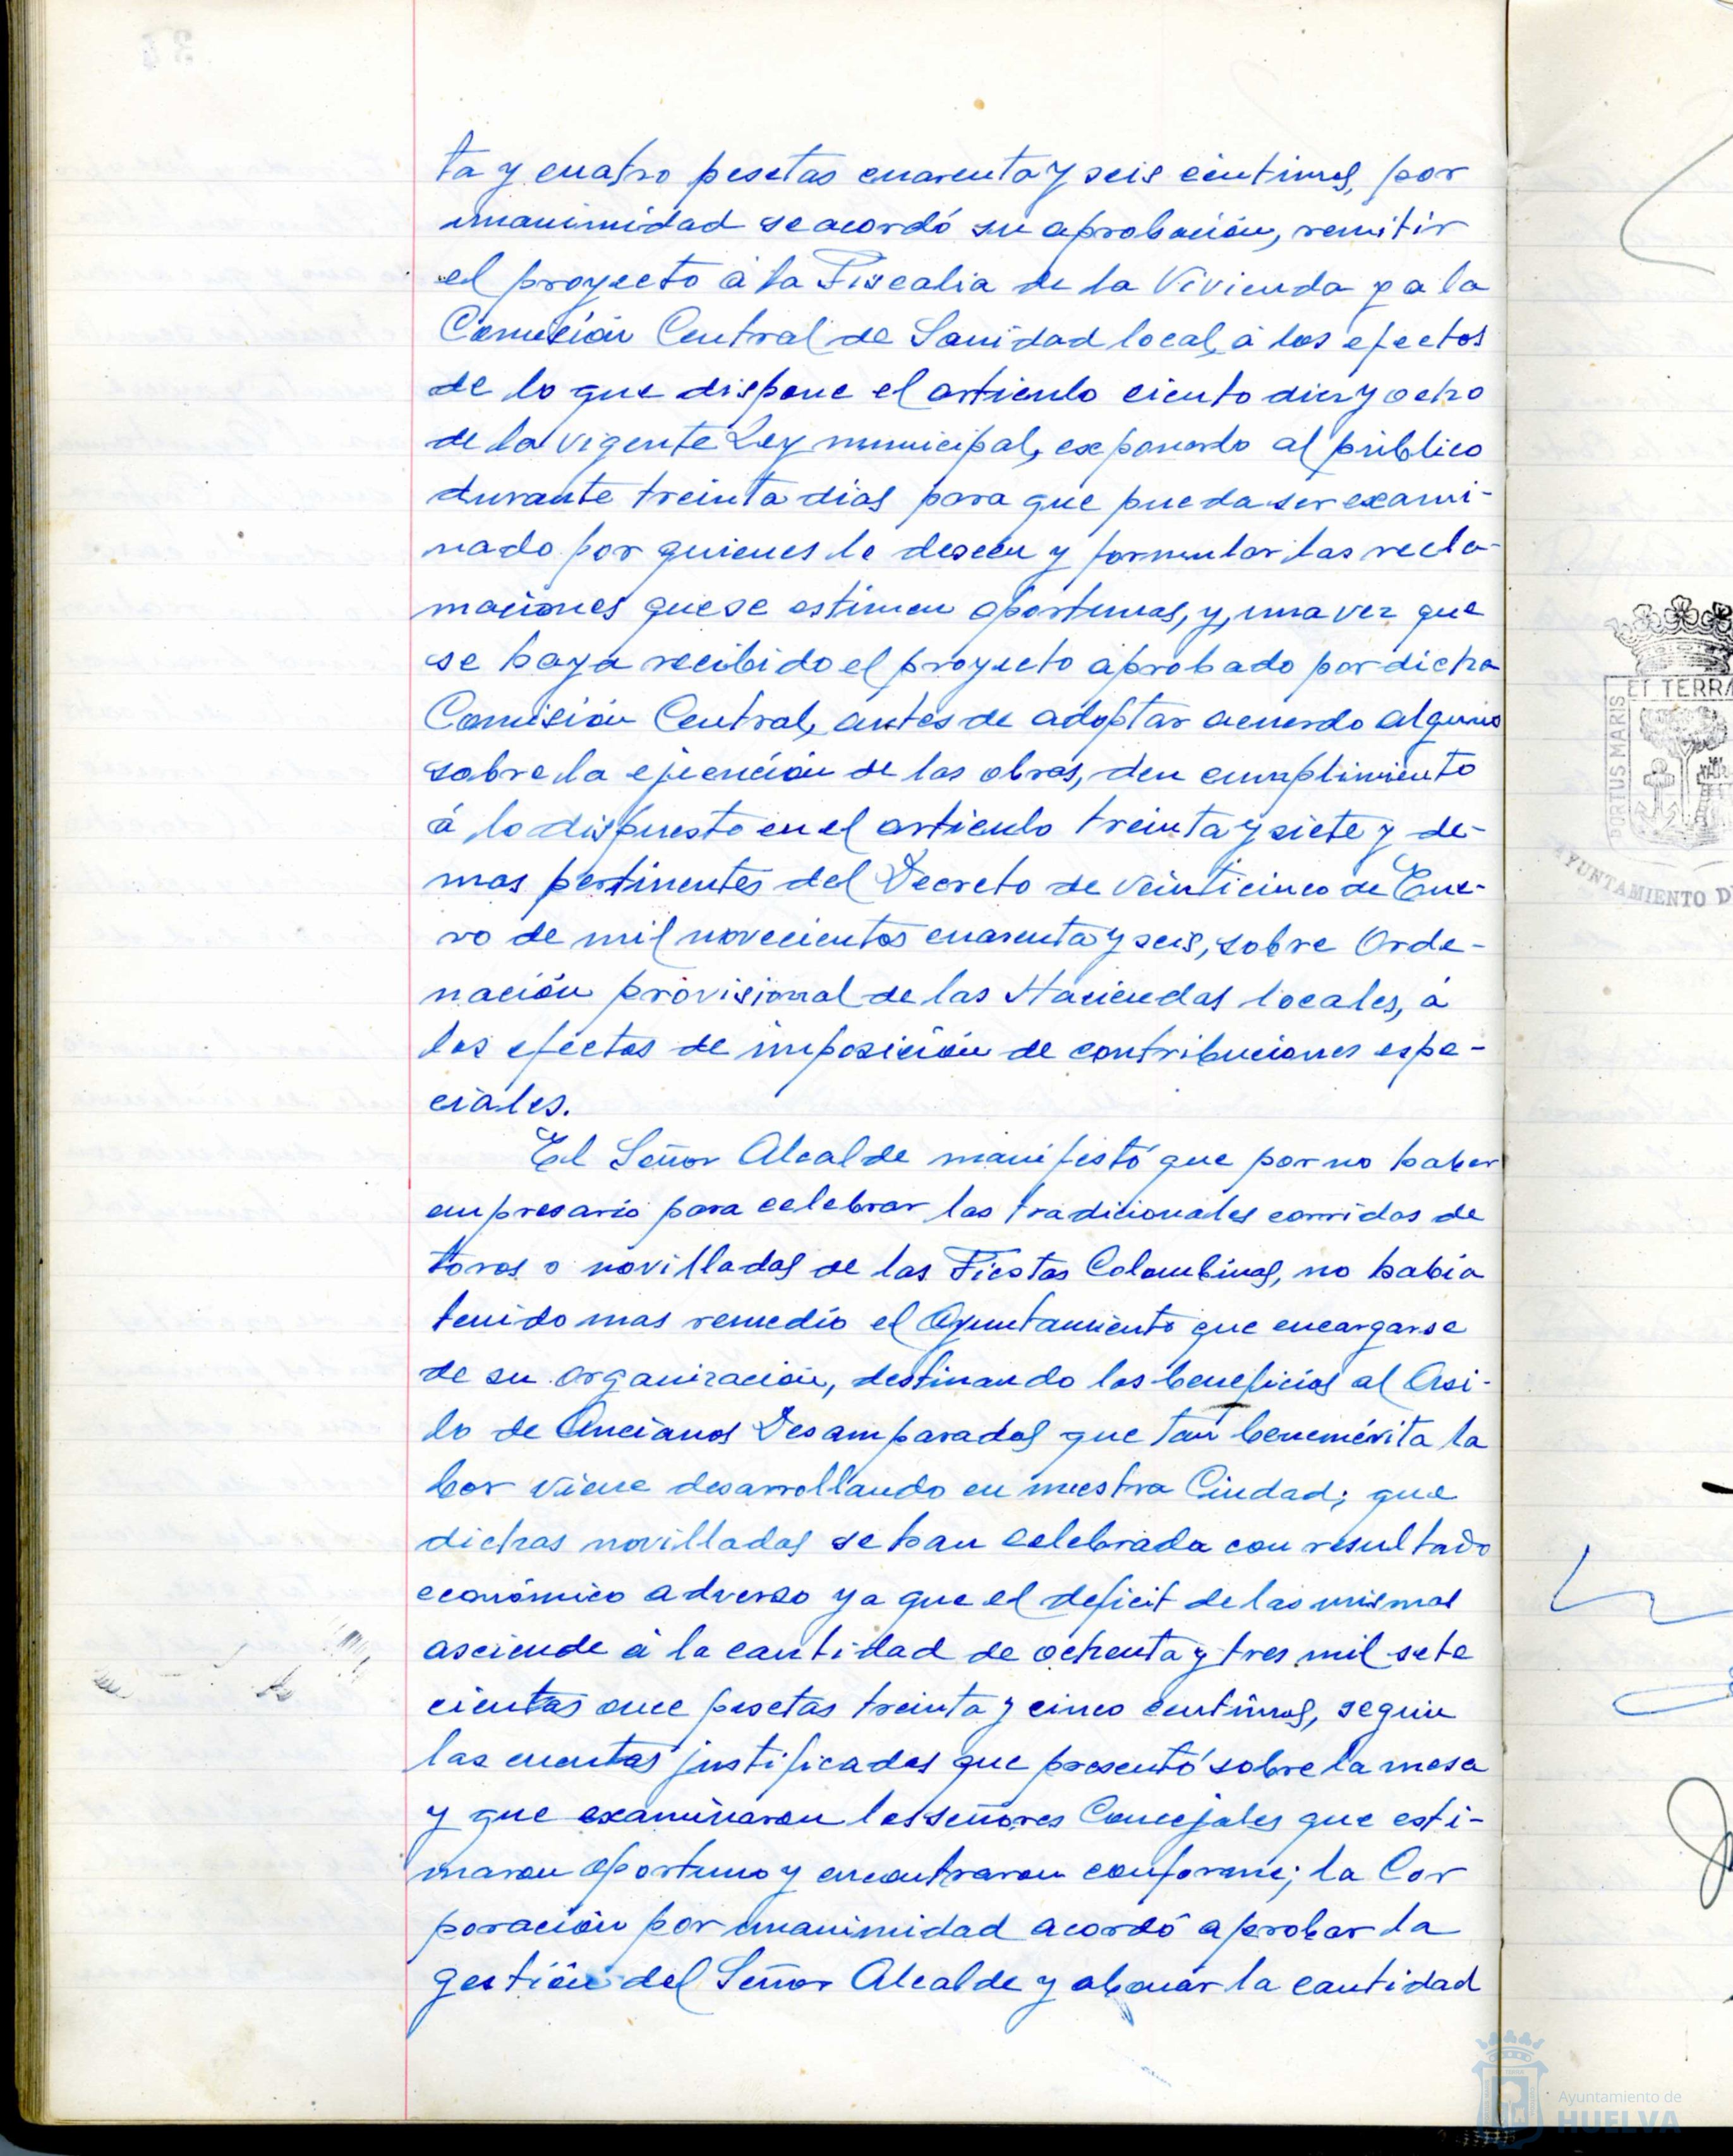 ta y cuatro pesetas cuarenta y seis céntimos, por
unanimidad se acordó su aprobación, remitir
el proyecto á la Fiscalia de la Vivienda y a la
Comisión Central de Sanidad local, á los efectos
de lo que dispone el articulo ciento diez y ocho
de la vigente Ley municipal, exponerlo al público
durante treinta dias para que pueda ser exami-
nado por quienes lo deseen y formular las recla-
maciones que se estimen oportunas, y, una vez que
se haya recibido el proyecto aprobado por dicha
Comisión Central, antes de adoptar acuerdo alguno
sobre la ejecución de las obras, den cumplimiento
á lo dispuesto en el articulo treinta y siete y de-
mas pertinentes del Decreto de veinticinco de Ene-
ro de mil novecientos cuarenta y seis, sobre Orde-
nación provisional de las Haciendas locales, á
los efectos de imposición de contribuciones espe-
ciales.
El Señor Alcalde manifestó que por no haber
empresario para celebrar las tradicionales corridas de
toros o novilladas de las Fiestas Colombinas, no habia
tenido mas remedio el Ayuntamiento que encargarse
de su organización, destinando los beneficios al Asi-
lo de Ancianos Desamparados que tan benemérita la
bor viene desarrollando en nuestra Ciudad; que
dichas novilladas se han celebrado con resultado
económico adverso ya que el deficit de las mismas
asciende á la cantidad de ochenta y tres mil sete
cientas once pesetas treinta y cinco centimos, segun
las cuentas justificadas que presentó sobre la mesa
y que examinaron los señores Concejales que esti-
maron oportuno y encontraron conforme; la Cor
poración por unanimidad acordó aprobar la
gestión del Señor Alcalde y abonar la cantidad
ET TERRA
PORTUS MARIS
AYUNTAMIENTO D
Ayuntamiento de
HUELVA